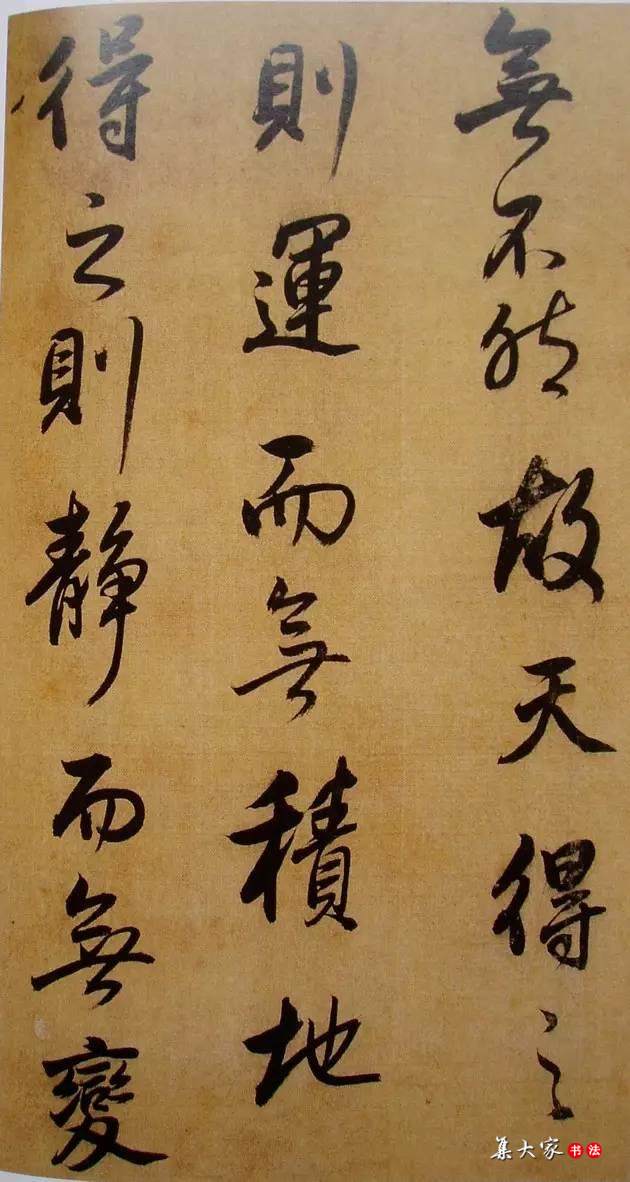 無不然故天得之
則運而無積地
得之則靜而無變
集大家书法